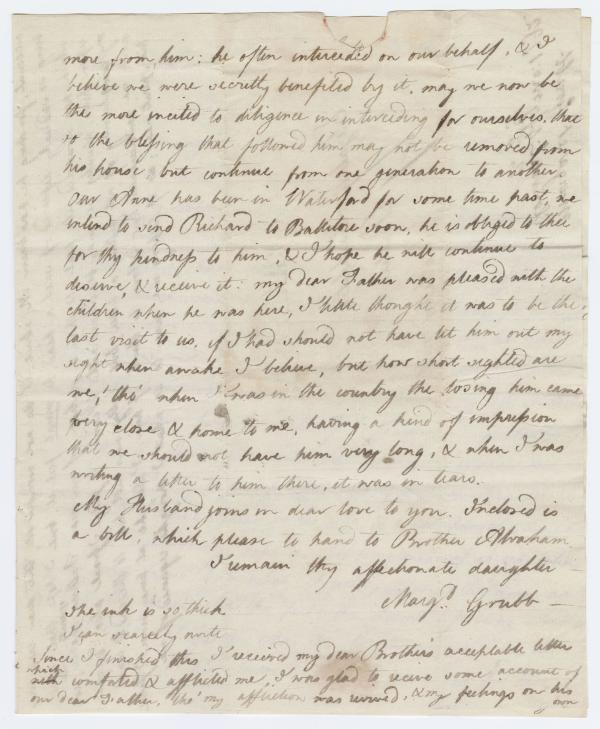 more from him: he often interceded on our behalf, & I
believe we were secretly benefited by it, may we now be
the more incited to diligence in interceding for ourselves, that
so the blessing that followed him may not be removed from
his house but continue from one generation to another.
Our Anne has been in Waterford for some time past, we
intend to send Richard to Ballitore soon, he is obliged to thee
for thy kindness to him, & I hope he will continue to
deserve, & receive it: my dear Father was pleased with the
children when he was here, I little thought it was to be the
last visit to us, if I had should not have let him out my
sight when awake I believe, but how short sighted are
we, tho' when I was in the country the losing him came
very close & home to me, having a kind of impression
that we should not have him very long, & when I was
writing a letter to him there, it was in tears.
My Husband joins in dear love to you. Inclosed is
a bill, which please to hand to Brother Abraham
I remain thy affectionate daughter
Margt. Grubb
The ink is so thick
I can scarcely write
Since I finished this I received my dear Brother's acceptable letter
which comforted & afflicted me, I was glad to receive some account of
our dear Father, tho' my affliction was revived, & my feelings on his
own